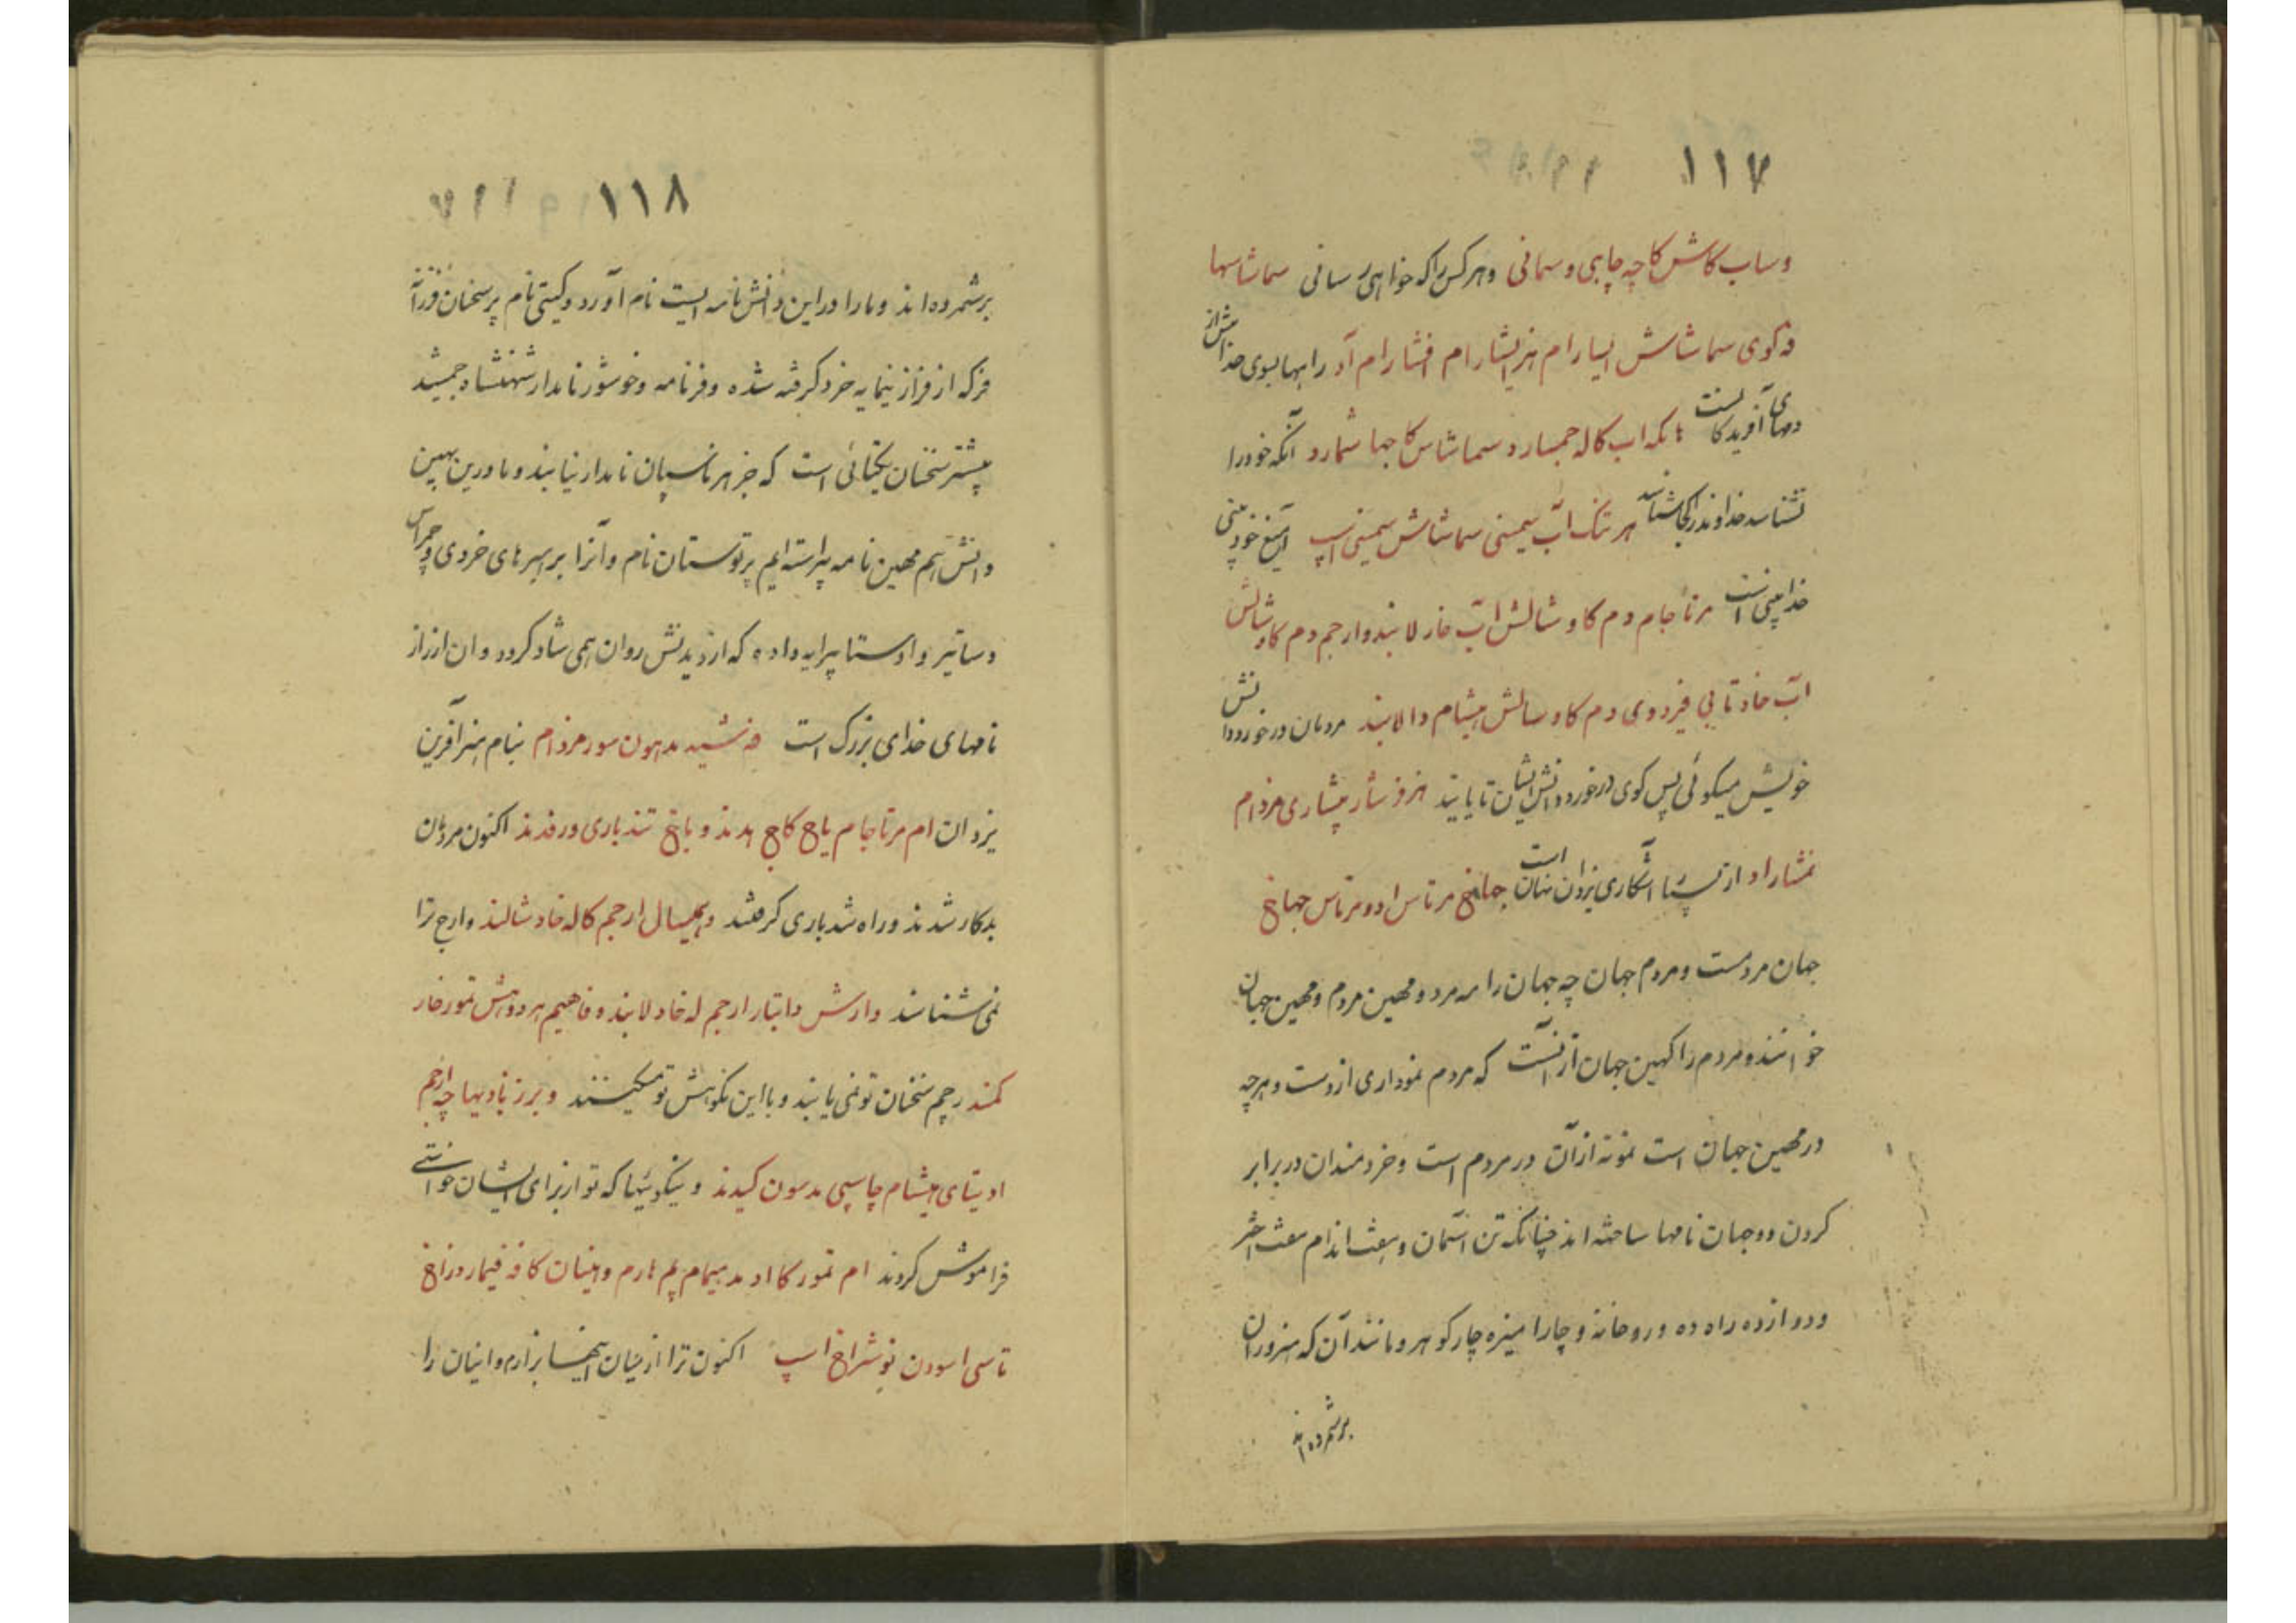 ۱۱۷
وساب کاش کاچه چاپی و سمانی وهر کس را که خواهی رسانی سماشاسها
فه کوی سماشاش الیسارام هنریشارام افشارام آد راهها بسوی خدا بیش از
دمهای آفریدگانست هانکه اب کاله جمسارد سماشاس کاجها شمارد آنکه خود را
نشناسد خداوند را کجا شناسد هر تنک اب سیمنی سماشاش سیمنی اسپ آمیغ خود بینی
خدا بینی است مرتاجام دم کاو شالش اب خار لابند وارجم دم کاو شالش
اب خاد تا بی فیردوی دم کاو سالش هیشام دالابند مردمان در خورد دانش
خویش میگوئی پس گوی در خورد دانش ایشان تا یابند هزوز شار پیشاری مزدام
نمشاراد از بس آشکاری یزدان نهان است جهانخ مرتاس اد و مرتاس جهاخ
جهان مردمست و مردم جهان چه جهان را مه مرد و مهین مردم و مهین جهان
خوانند و مردم را کهین جهان از آنست که مردم نموداری ازوست و هرچه
در مهین جهان است نمونه از آن در مردم است و خردمندان در برابر
کردن دو جهان نامها ساخته اند چنانکه تن آسمان و هفت اندام هفت اختر
و دوازده راه ده و دو خانه و چار آمیزه چار گوهر و مانند آن که هنروران
برشمرده اند
۱۱۸
برشمرده اند و ما را در این دانش نامه ایست نام آورد و گیتی نام بر سخنان فرزانه
فر که از فراز نیمایه خرد گرفته شده و فرنامه وخشور نامدار شهنشاه جمشید
بیشتر سخنان یکتائی است که جز هرناسپان نامدار نیابند و ما درین بهین
دانش هم مهین نامه پیراسته ایم پرتوستان نام و آنرا بر رهبرهای خردی و چمراس
دساتیر و اوستا پیرایه داده که از دیدنش روان همی شاد گردد و ان از راز
نامهای خدای بزرگ است فه شید مدهون سور مزدام بنام هنر آفرین
یزدان ام مرتاجام یاخ کاج هدند و باغ تندباری ورفدند اکنون مردمان
بدکار شدند و راه تندباری گرفتند وهیسال ارجم کاله خاد شالند وارج ترا
نمی شناسند وارش دابتار ارجم له خاد لابنده فاهیم هردوش تمور خار
کمند رچم سخنان تو نمی یابند و با این نکوهش تو میکنند و برز باد یها چه ارجم
ادیتای هیشام چاسپی مدسون کیدند و نیکوئیها که تو از برای ایشان خواستی
فراموش کردند ام تمور کا اد مد همیام یم هارم وهینان کا فه فیمار در زاغ
تاسی اسودن بوشراغ اسپ اکنون ترا از میان اینها بر آرم و اینان را